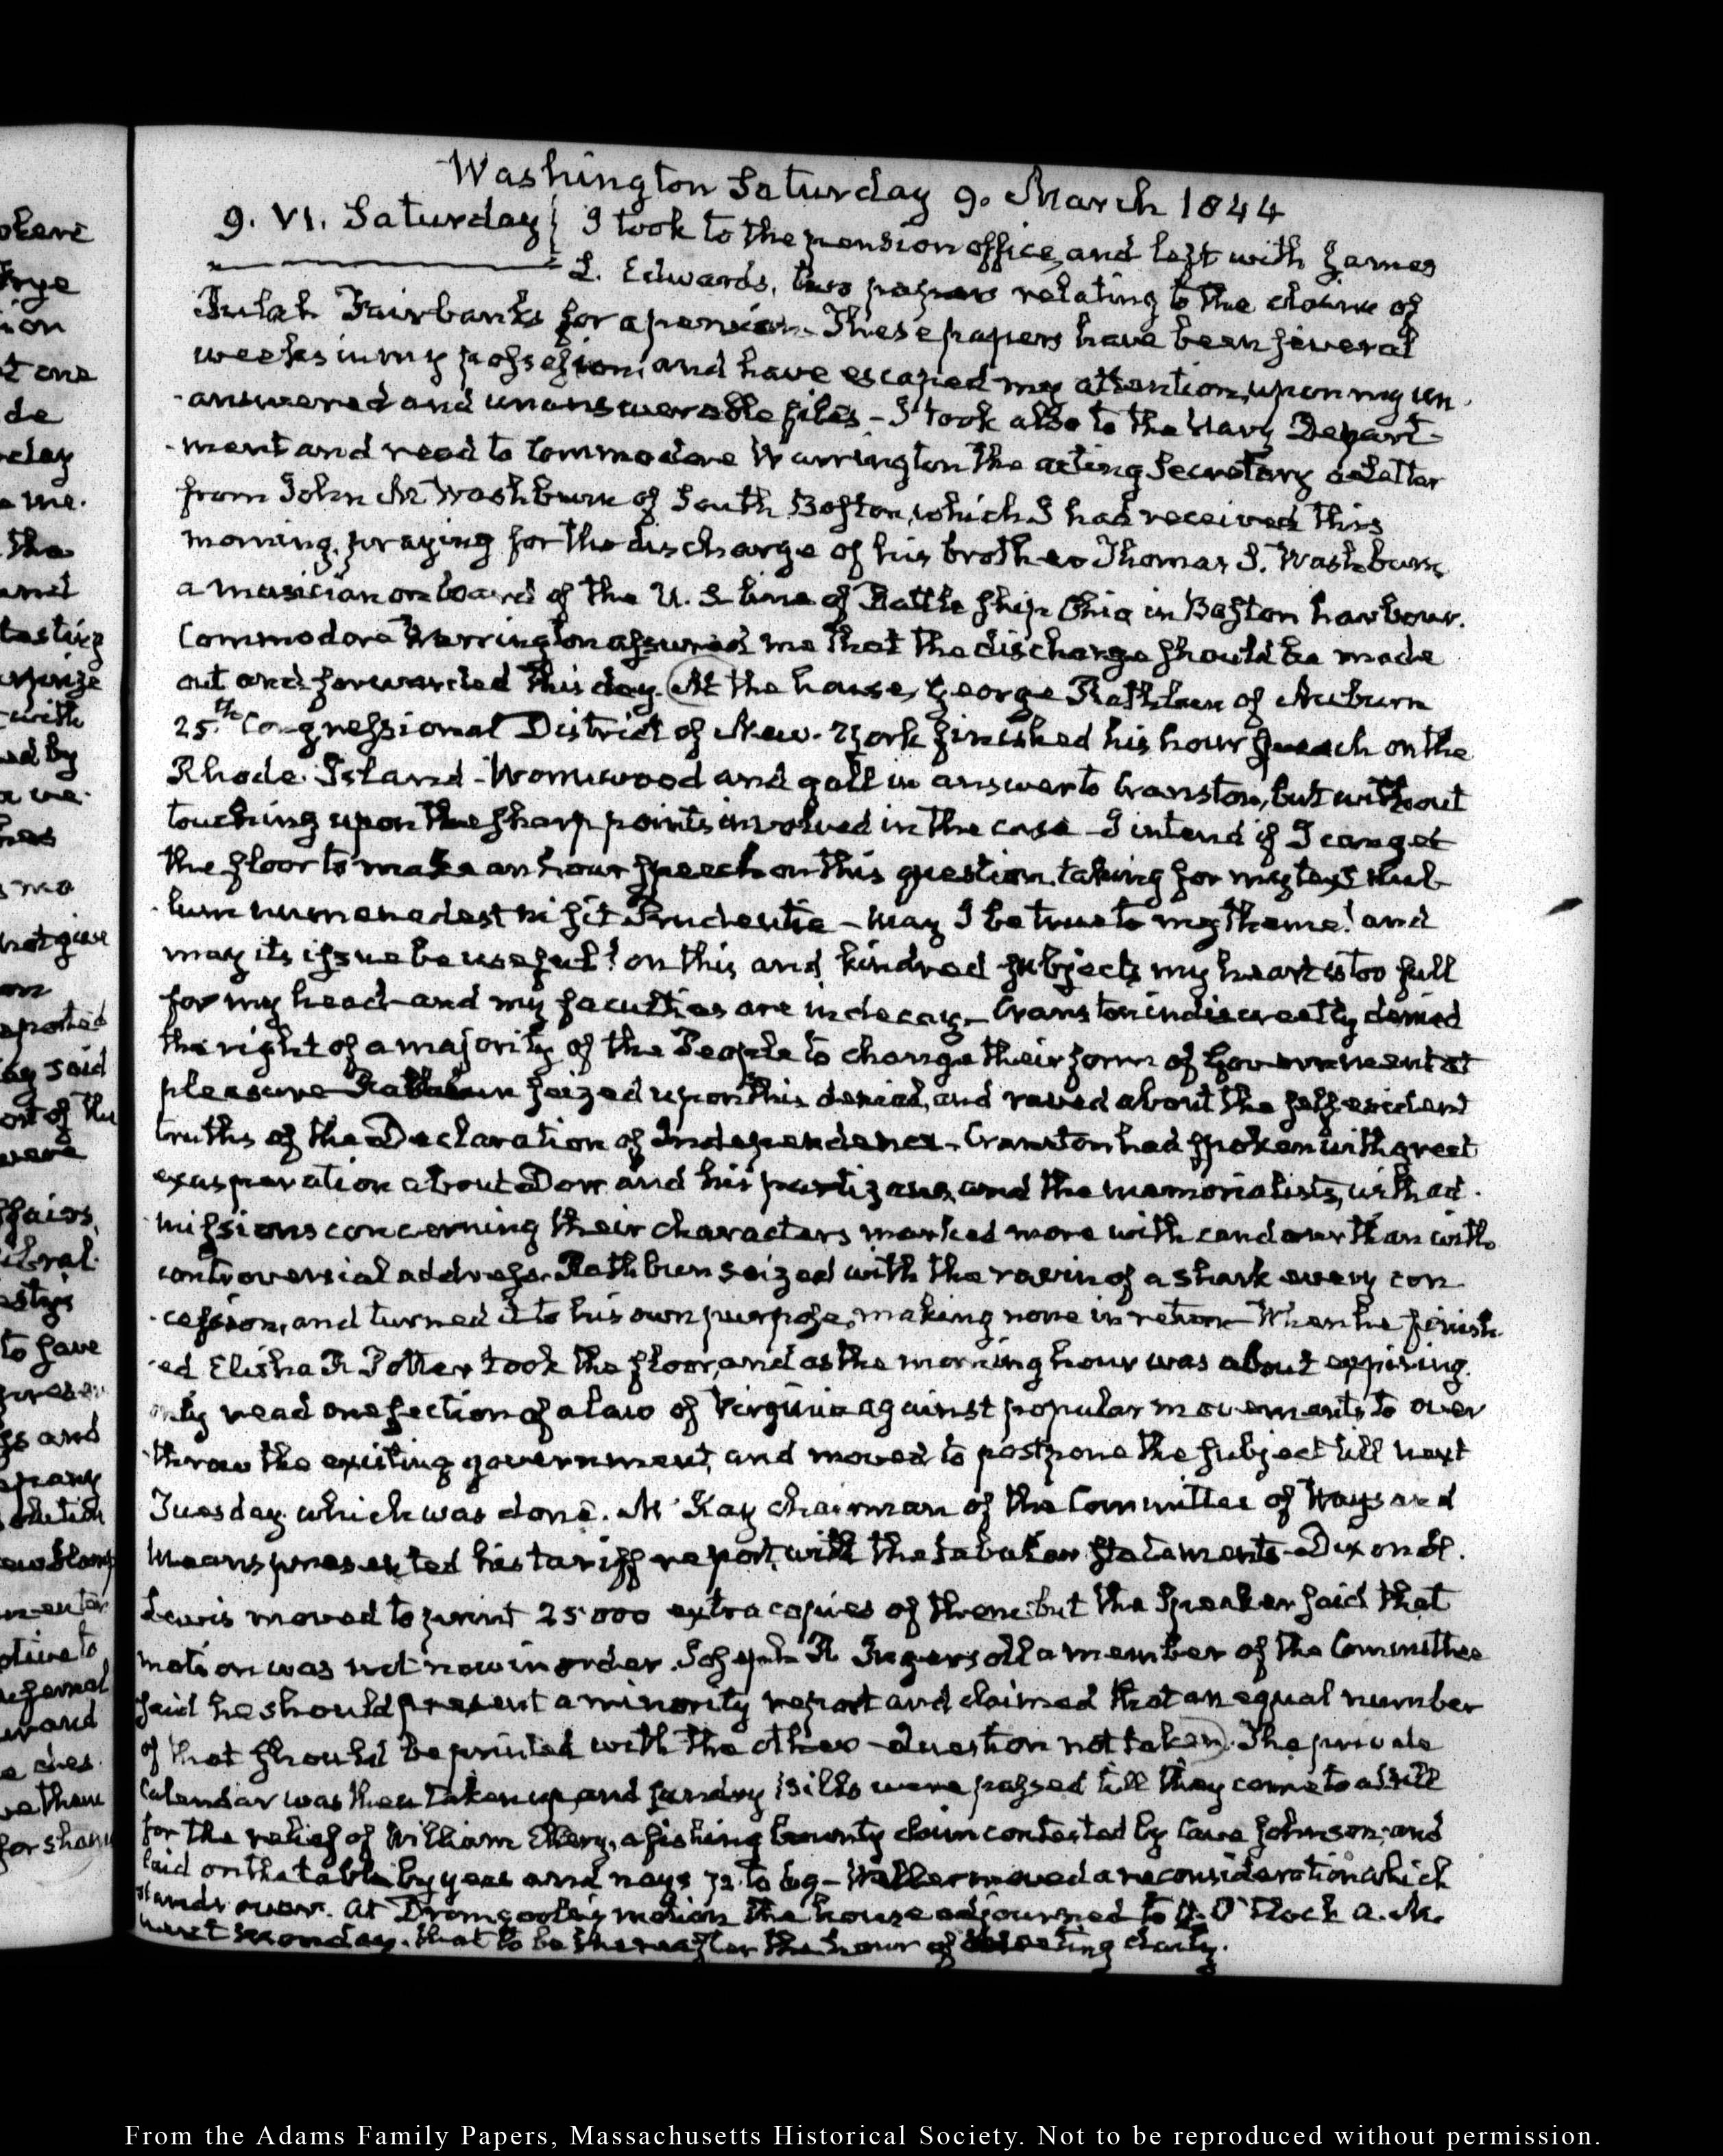 Washington Saturday 9. March 1844
9. VI. Saturday I took to the pension office, and left with James
L. Edwards, two papers relating to the claim of
Fairbanks for a pension. These papers have been several
weeks in my possession, and have escaped my attention, upon my un-
-answered and unanswerable files - I took also to the Navy Depart-
-ment and read to Commodore Warrington the acting Secretary a letter
from John M Washburn of South Boston, which I had received this
morning, praying for the discharge of his brother Thomas S. Washburn
a musician on board of the U. S. line of Battle ship Ohio in Boston harbour.
Commodore Warrington assured me that the discharge should be made
out and forwarded this day. At the house, George Rathbun of Auburn
25.th Congressional District of New-York finished his hour speech on the
Rhode-Island - Wormwood and gall in answer to Cranston, but without
touching upon the sharp points involved in the case - I intend if I can get
the floor to make an hour speech on this question, taking for my text Nul-
-lum numen abest si sit Prudentia - May I be true to my theme! and
may its issue be useful! on this and kindred subjects my heart is too full
for my head - and my faculties are in decay - Cranston indiscreetly denied
the right of a majority of the People to change their form of Government at
pleasure - Rathbun seized upon this denial, and raved about the self evident
truths of the Declaration of Independence - Cranston had spoken with great
exasperation about Dorr and his partizans, and the memorialists, with ad-
-missions concerning their characters marked more with candour than with
controversial address. Rathbun seized with the ravin of a shark every con
-cession, and turned it to his own purpose, making none in return - When he finish-
-ed Elisha R Potter took the floor, and as the morning hour was about expiring.
only read one section of a law of Virginia against popular movements to over
-throw the existing government, and moved to postpone the subject till next
Tuesday, which was done. Mc Kay chairman of the Committee of Ways and
Means presented his tariff report, with the tabular statements - Dixon H.
Lewis moved to print 25000 extra copies of them: but the Speaker said that
motion was not now in order. Joseph R. Ingersoll a member of the Committee
said he should present a minority report and claimed that an equal number
of that should be printed with the other - Question not taken. The private
Calendar was then taken up, and sundry Bills were passed till they came to a bill
for the relief of William Ellery, a fishing bounty claim contested by Cave Johnson; and
laid on the table by yeas and nays 72 to 69 - moved a reconsideration which
stands over. At Dromgoole's motion the house adjourned to 11. O'Clock a.m.
next Monday. that to be thereafter the hour of meeting daily.